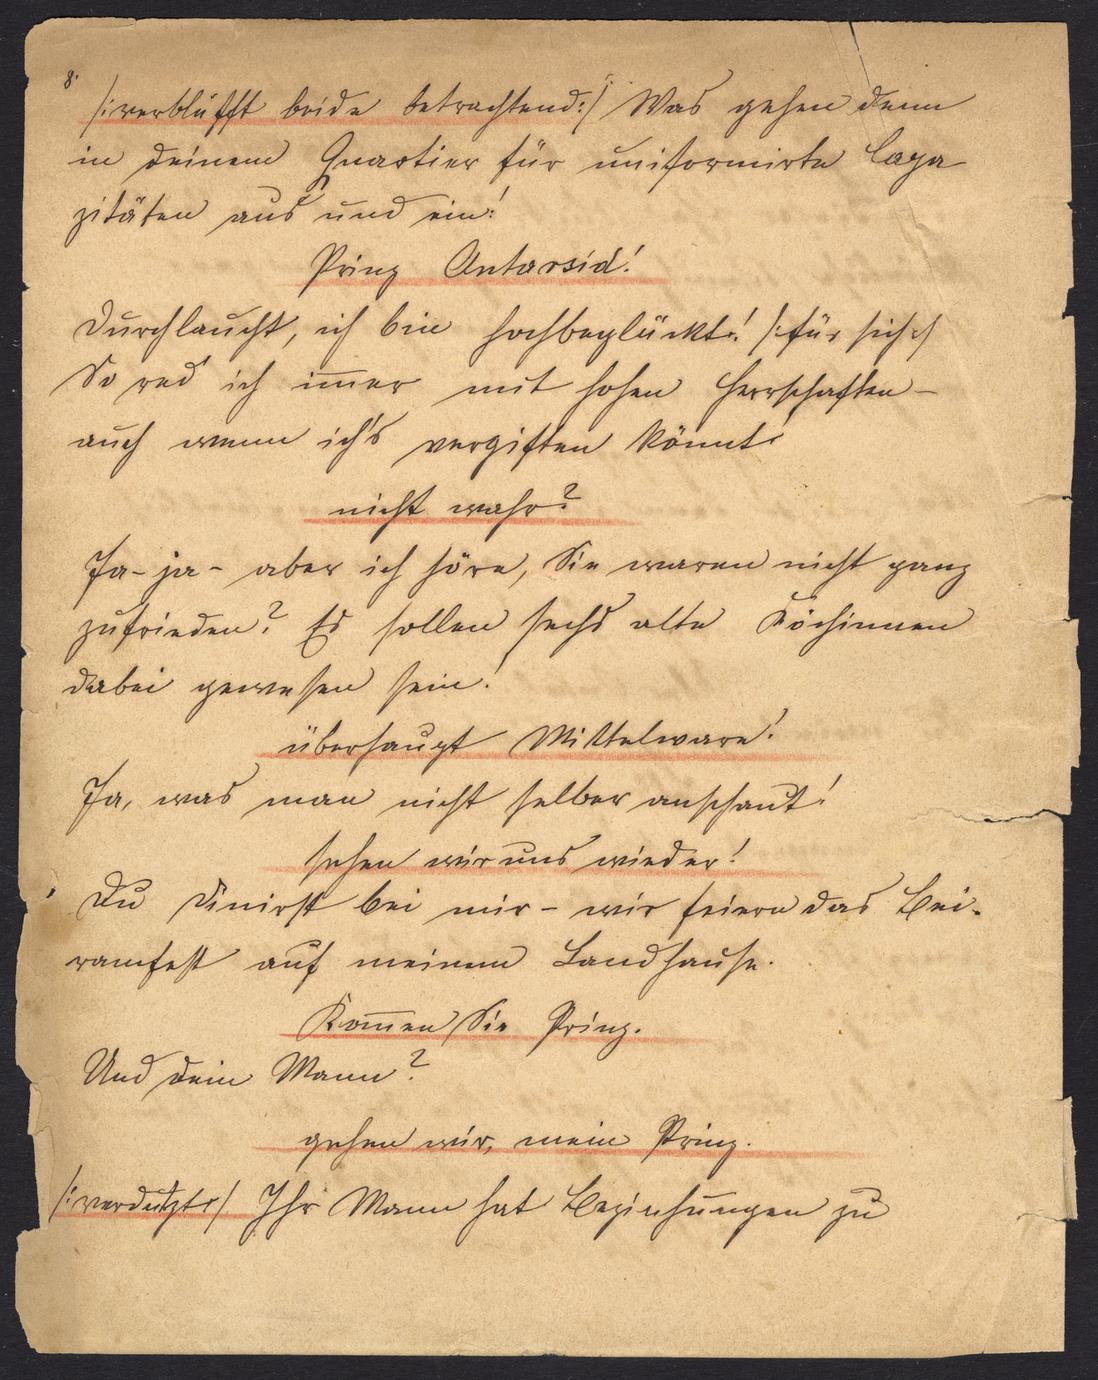 8.
/:verblüfft beide betrachtend:/ Was gehen denn
in deinem Quartier für uniformirte Capa
zitäten aus und ein!
Prinz Antarsid!
Durchlaucht, ich bin hochbeglückt! /:für sich:/
So red' ich im̅er mit hohen Herrschaften –
auch wenn ich's vergiften könnt'
nicht wahr?
Ja – ja – aber ich höre, Sie waren nicht ganz
zufrieden? Es sollen sechs alte Köchinnen
dabei gewesen sein!
überhaupt Mittelware!
Ja, was man nicht selber anschaut!
sehen wir uns wieder!
Du dinirst bei mir – wir feiern das Bei-
ramfest auf meinem Landhause.
Kom̅en Sie Prinz.
Und dein Mann?
gehen wir, mein Prinz.
/:verdutzt:/ Ihr Mann hat Beziehungen zu